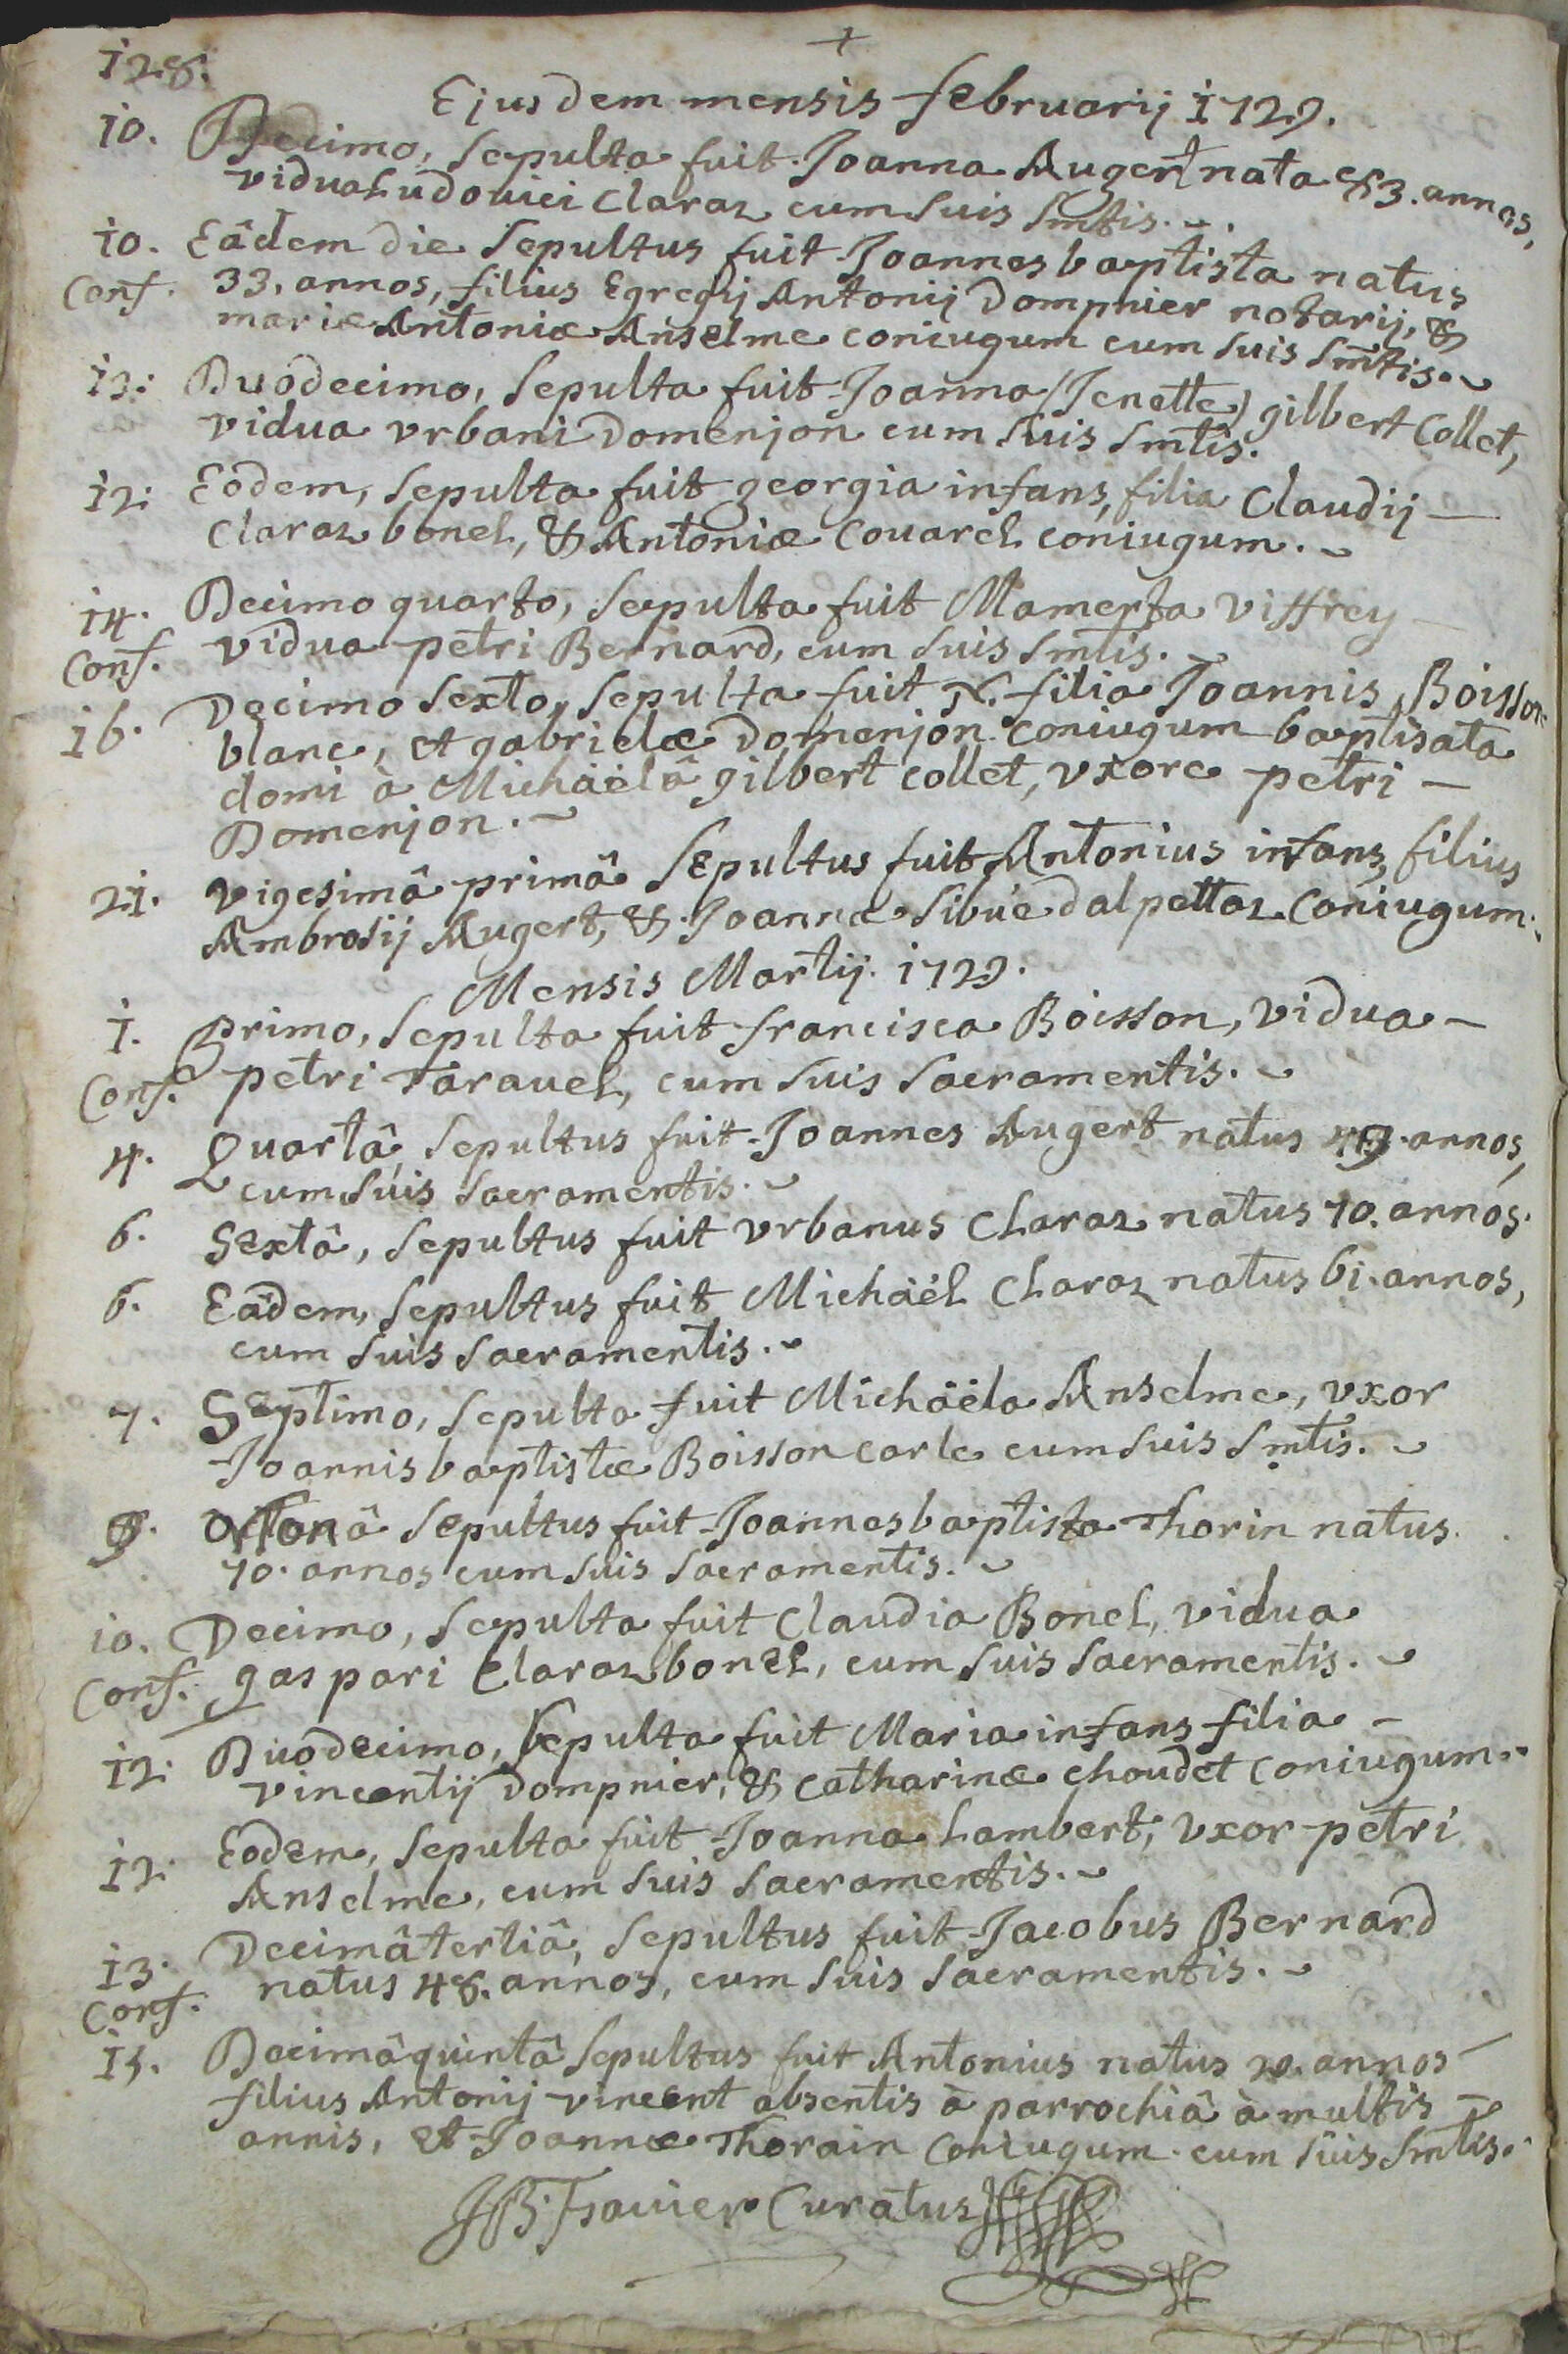 128.
+
Ejusdem mensis februarij 1729.
10. Decimo, sepulta fuit Joanna Augert nata 83. annos,
vidua Ludovici Claraz cum suis Smtis.
10. Eâdem die sepultus fuit Joannes baptista natus
Conf. 33. annos, filius Egregij Antonij Dompnier notarij, &
mariæ Antoniæ Anselme coniugum cum suis Smtis.
12. Duodecimo, sepulta fuit Joanna (Jenette) gilbert Collet,
vidua vrbani Domenjon cum suis Smtis.
12. Eodem, sepulta fuit georgia infans, filia Claudij
Claraz bonel, & Antoniæ Couarel coniugum.
14. Decimo quarto, sepulta fuit Mamerta Viffrey
Conf. vidua petri Bernard, cum suis Smtis.
16. Decimo sexto, sepulta fuit N. filia Joannis Boisson
blanc, et gabrielæ Domenjon coniugum baptisata
domi à Michäelâ gilbert collet, vxore petri
Domenjon.
21. Vigesimâ primâ sepultus fuit Antonius infans, filius
Ambrosij Augert, & Joannæ Sibué dalpettaz Coniugum.
Mensis Martij. 1729.
1. Primo, sepulta fuit francisca Boisson, vidua
Conf. petri Taravel, cum suis sacramentis.
4. Quartâ, sepultus fuit Joannes Augert natus 49. annos,
cum suis sacramentis.
6. Sextâ, sepultus fuit vrbanus Claraz natus 70. annos.
6. Eâdem, sepultus fuit Michäel Claraz natus 61. annos,
cum suis sacramentis.
7. Septimo, sepulta fuit Michäela Anselme, vxor
Joannis baptistæ Boisson carle cum suis Smtis.
9. sepultus fuit Joannes baptista Thorin natus
70. annos cum suis sacramentis.
10. Decimo, sepulta fuit Claudia Bonel, vidua
Conf. gaspari Claraz bonel, cum suis sacramentis.
12. Duodecimo, sepulta fuit Maria infans filia
vincentij Dompnier, & Catharinæ Choudet Coniugum.
12. Eodem, sepulta fuit Joanna Lambert, vxor petri
Anselme, cum suis sacramentis.
13. Decimâ tertiâ, sepultus fuit Jacobus Bernard
Conf. natus 48. annos, cum suis sacramentis.
15. Decimâ quintâ sepultus fuit Antonius natus 20. annos
filius Antonij vincent absentis à parrochiâ à multis
annis, et Joannæ Thorain Coniugum cum suis Smtis.
Curatus